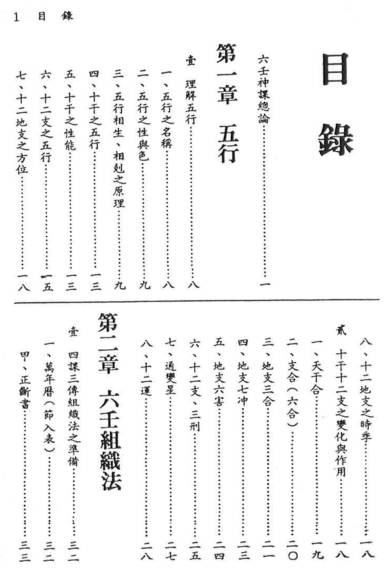 1 目錄
目錄
六壬神課總論⋯⋯一
第一章 五行
壹 理解五行⋯⋯八
一、五行之名稱⋯⋯八
二、五行之性與色⋯⋯九
三、五行相生、相剋之原理⋯⋯九
四、十干之五行⋯⋯一三
五、十干之性能⋯⋯一三
六、十二支之五行⋯⋯一五
七、十二地支之方位⋯⋯一八
八、十二地支之時季⋯⋯一八
貳 十干十二支之變化與作用⋯⋯一八
一、天干合⋯⋯一九
二、支合(六合)⋯⋯二〇
三、地支三合⋯⋯二一
四、地支七冲⋯⋯二三
五、地支六害⋯⋯二四
六、十二支、三刑⋯⋯二五
七、通變星⋯⋯二七
八、十二運⋯⋯二八
第二章 六壬組織法
壹 四課三傳組織法之準備⋯⋯三二
一、萬年曆(節入表)⋯⋯三二
甲、正斷書⋯⋯三三